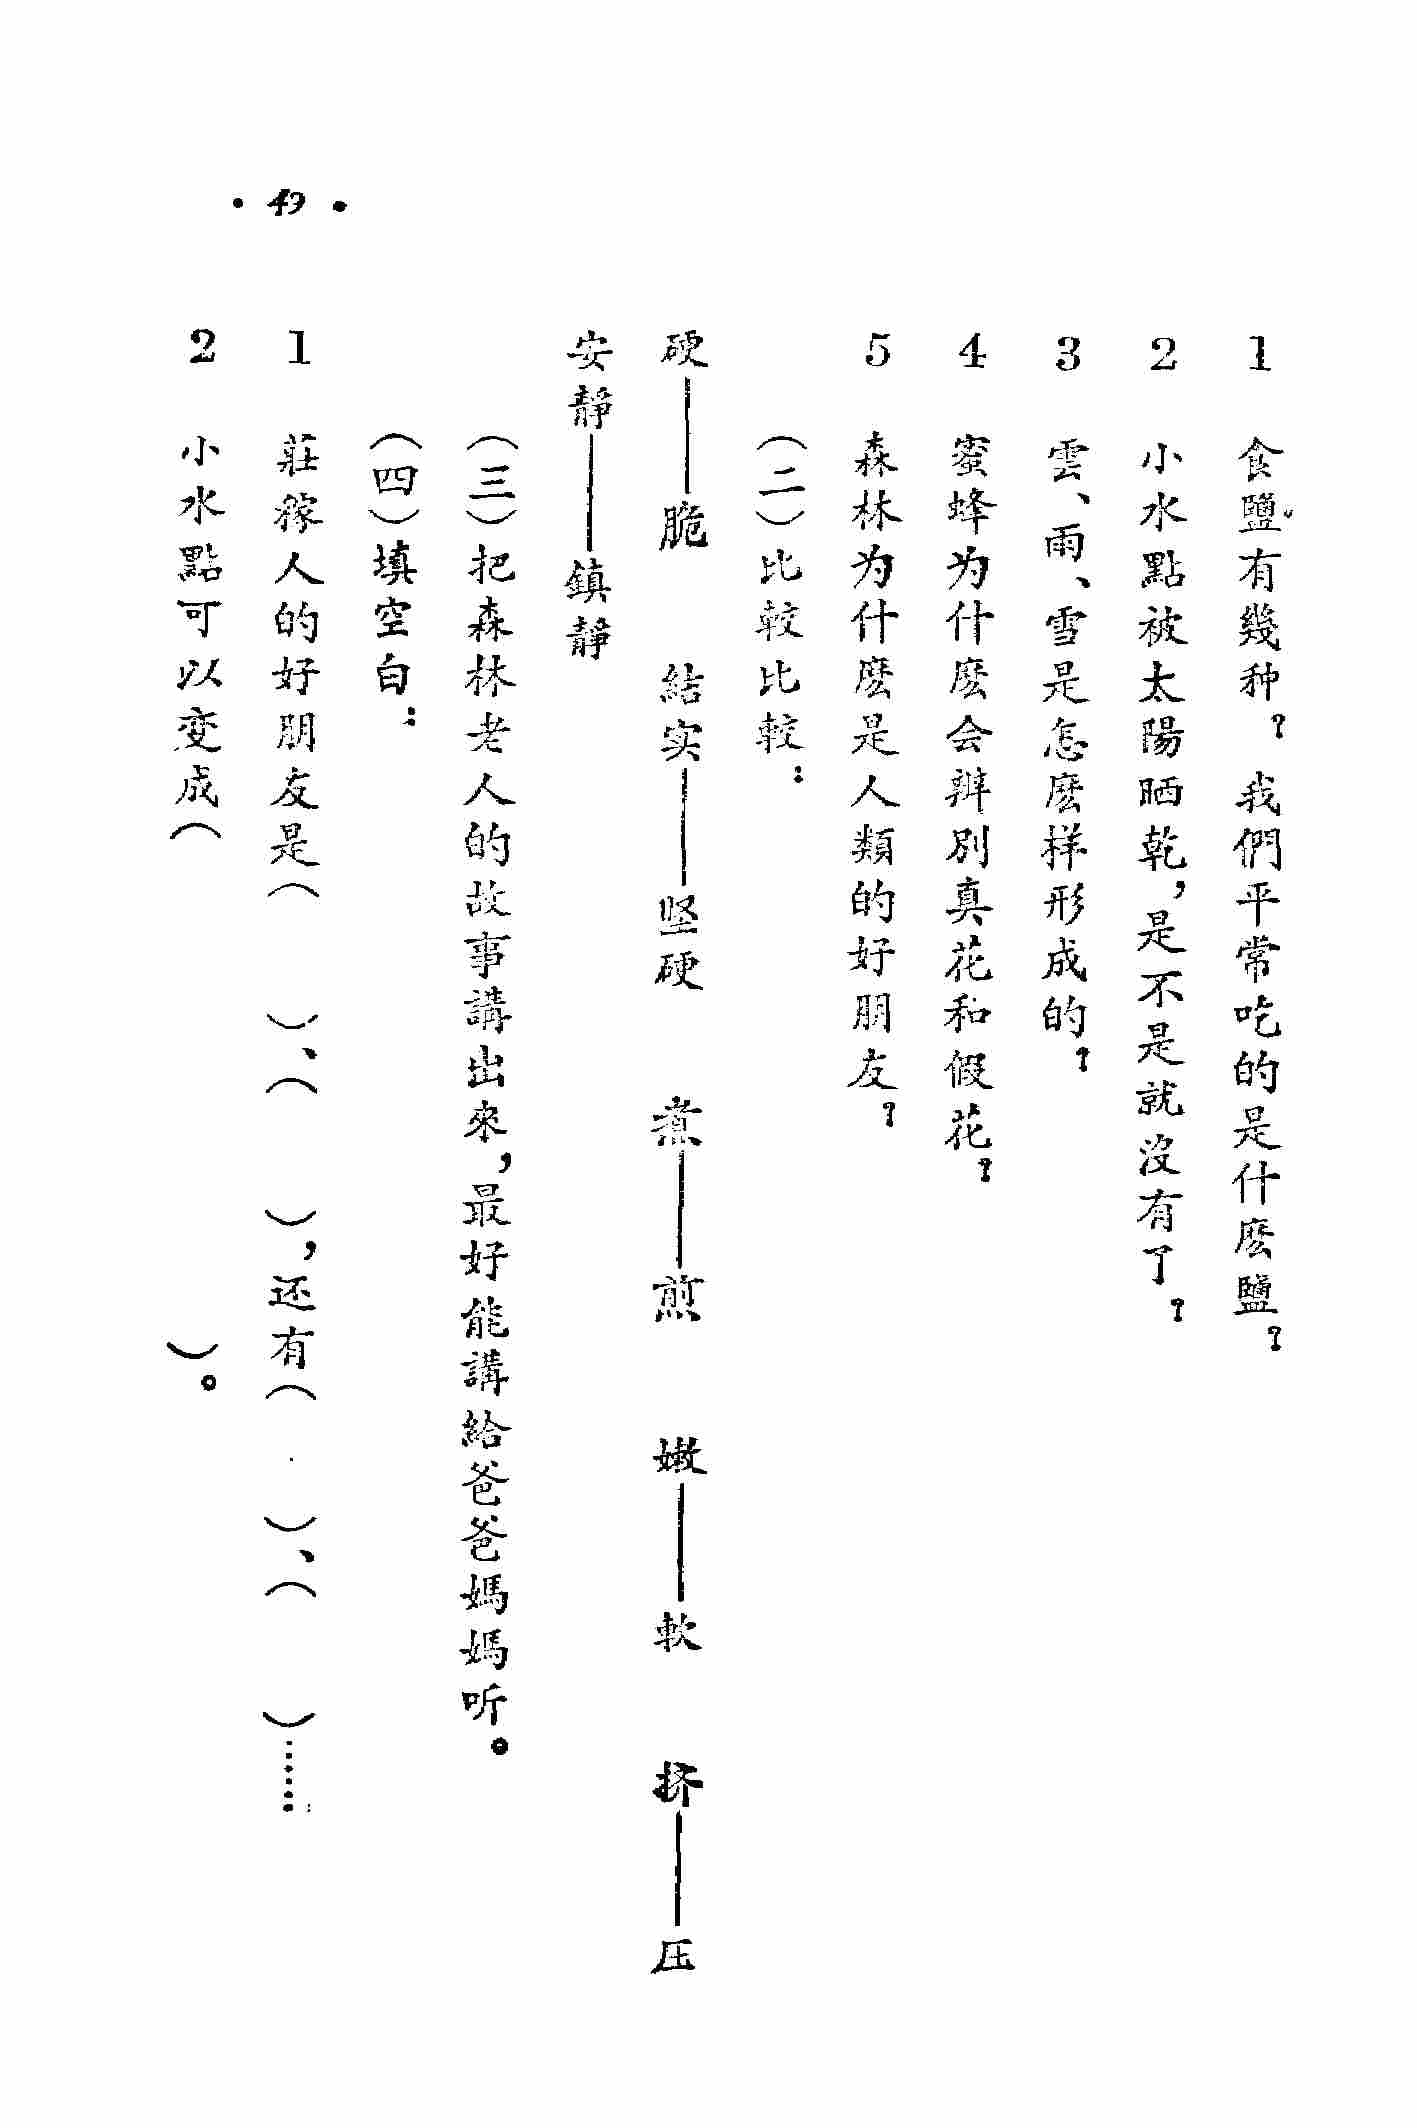 1 食鹽有幾种？我們平常吃的是什麽鹽？
2 小水點被太陽晒乾，是不是就沒有了？
3 雲、雨、雪是怎麽样形成的？
4 蜜蜂为什麽会辨別真花和假花？
5 森林为什麽是人類的好朋友？
（二）比較比較：
硬——脆 結实——坚硬 煮——煎 嫩——軟 挤——压
安靜——鎮靜
（三）把森林老人的故事講出來，最好能講給爸爸媽媽听。
（四）填空白：
1 莊稼人的好朋友是（ ）、（ ），还有（ ）、（ ）……
2 小水點可以变成（ ）。
· 49 ·